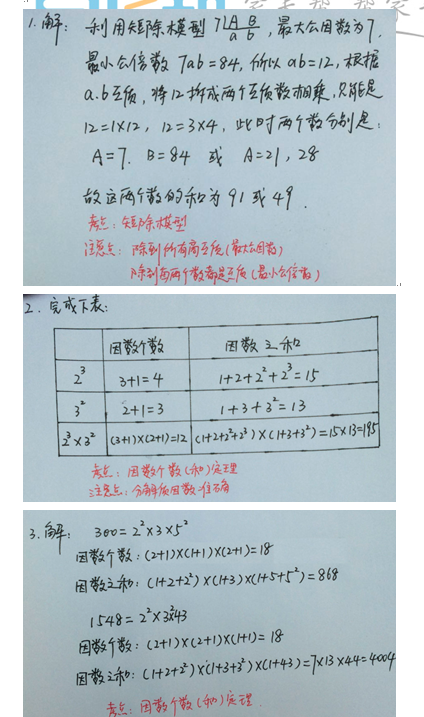 1.解: 利用短除模型 7|A B / a b, 最大公因数为7,
最小公倍数 7ab=84, 所以 ab=12, 根据
a.b互质, 将12拆成两个互质数相乘, 只能是
12=1×12, 12=3×4, 此时两个数分别是:
A=7. B=84 或 A=21, 28
故这两个数的和为 91 或 49.
考点: 短除模型
注意点: 除到所有商互质(最大公因数)
除到每两个数都是互质(最小公倍数)
2. 完成下表:
因数个数 因数之和
2³ 3+1=4 1+2+2²+2³=15
3² 2+1=3 1+3+3²=13
2³×3² (3+1)×(2+1)=12 (1+2+2²+2³)×(1+3+3²)=15×13=195
考点: 因数个数(和)定理
注意点: 分解质因数准确
3.解: 300=2²×3×5²
因数个数: (2+1)×(1+1)×(2+1)=18
因数之和: (1+2+2²)×(1+3)×(1+5+5²)=868
1548=2²×3²×43
因数个数: (2+1)×(2+1)×(1+1)=18
因数之和: (1+2+2²)×(1+3+3²)×(1+43)=7×13×44=4004
考点: 因数个数(和)定理.